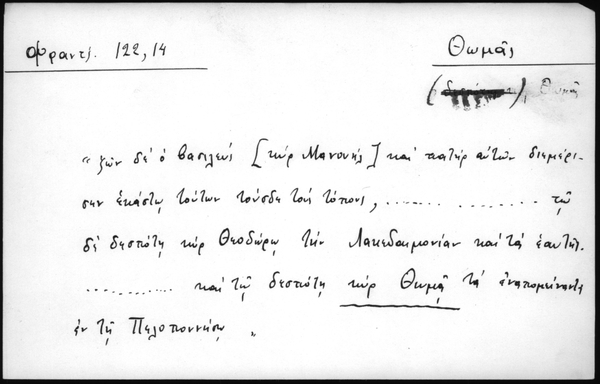 Φραντζ. 122,14
Θωμᾶς
( ), Θωμᾶς
"ζῶν δὲ ὁ βασιλεύς [κύρ Μανουήλ] καὶ πατήρ αὐτῶν διεμέρι-
σεν ἑκάστῳ τούτων τούσδε τούς τόπους, .................. τῷ
δὲ δεσπότῃ κύρ Θεοδώρῳ τὴν Λακεδαιμονίαν καὶ τὰ ἑαυτῆς.
............ καὶ τῷ δεσπότῃ κύρ Θωμᾷ τὰ ἐναπομείναντα
ἐν τῇ Πελοποννήσῳ "